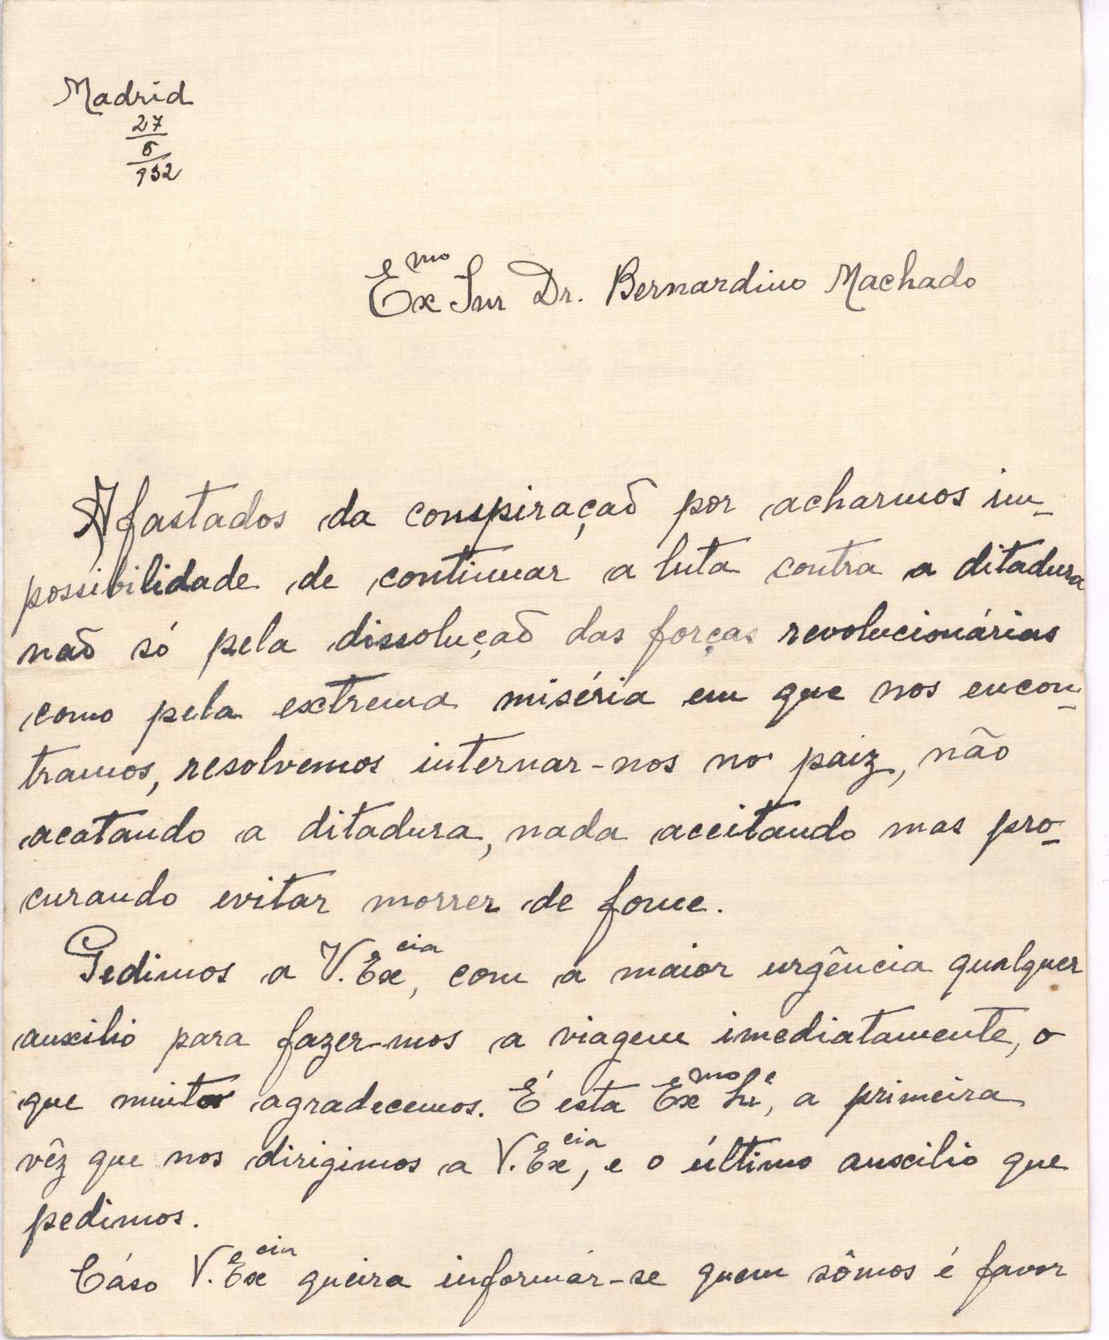 Madrid
27
6
932
Exmo Snr Dr. Bernardino Machado
Afastados da conspiração por acharmos im-
possibilidade de continuar a luta contra a ditadura
não só pela dissolução das forças revolucionárias
como pela extrema miséria em que nos encon-
tramos, resolvemos internar-nos no paiz, não
acatando a ditadura, nada aceitando mas pro-
curando evitar morrer de fome.
Pedimos a V. Excia, com a maior urgência qualquer
auxilio para fazer-mos a viagem imediatamente, o
que muito agradecemos. É esta Exmo Sr, a primeira
vêz que nos dirigimos a V. Excia, e o último auxilio que
pedimos.
Cáso V. Excia queira informár-se quem sômos é favor